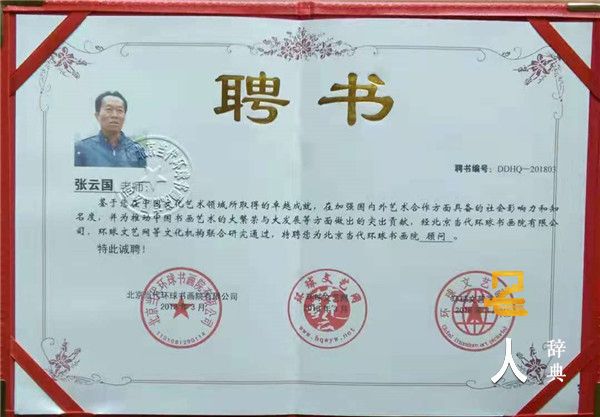 聘书
聘书编号：DDHQ—201803
张云国 老师：
鉴于您在中国文化艺术领域所取得的卓越成就，在加强国内外艺术合作方面具备的社会影响力和知
名度，并为推动中国书画艺术的大繁荣与大发展等方面做出的突出贡献，经北京当代环球书画院有限公
司、环球文艺网等文化机构联合研究通过，特聘您为北京当代环球书画院 顾问 。
特此诚聘！
北京当代环球书画院有限公司
2018年3月
环球文艺网
2018年3月
www.hqwyw.net
名
人
辞典